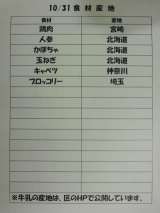 10/31 食材産地
食材 産地
鶏肉 宮崎
人参 北海道
かぼちゃ 北海道
玉ねぎ 北海道
キャベツ 神奈川
ブロッコリー 埼玉
※牛乳の産地は、区のHPで公開しています。